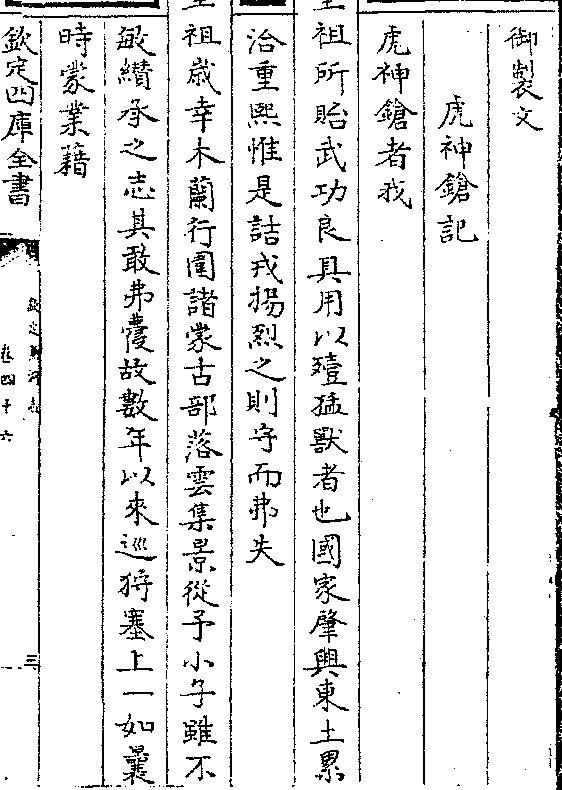 御製文
虎神鎗記
虎神鎗者我
祖所貽武功良具用以殪猛獸者也國家肇興東土累
洽重熙惟是詰戎揚烈之則守而弗失
祖歲幸木蘭行圍諸蒙古部落雲集景從予小子雖不
敏纘承之志其敢弗䖍故數年以來巡狩塞上一如曩
時蒙業藉
欽定四庫全書
卷四十六
三